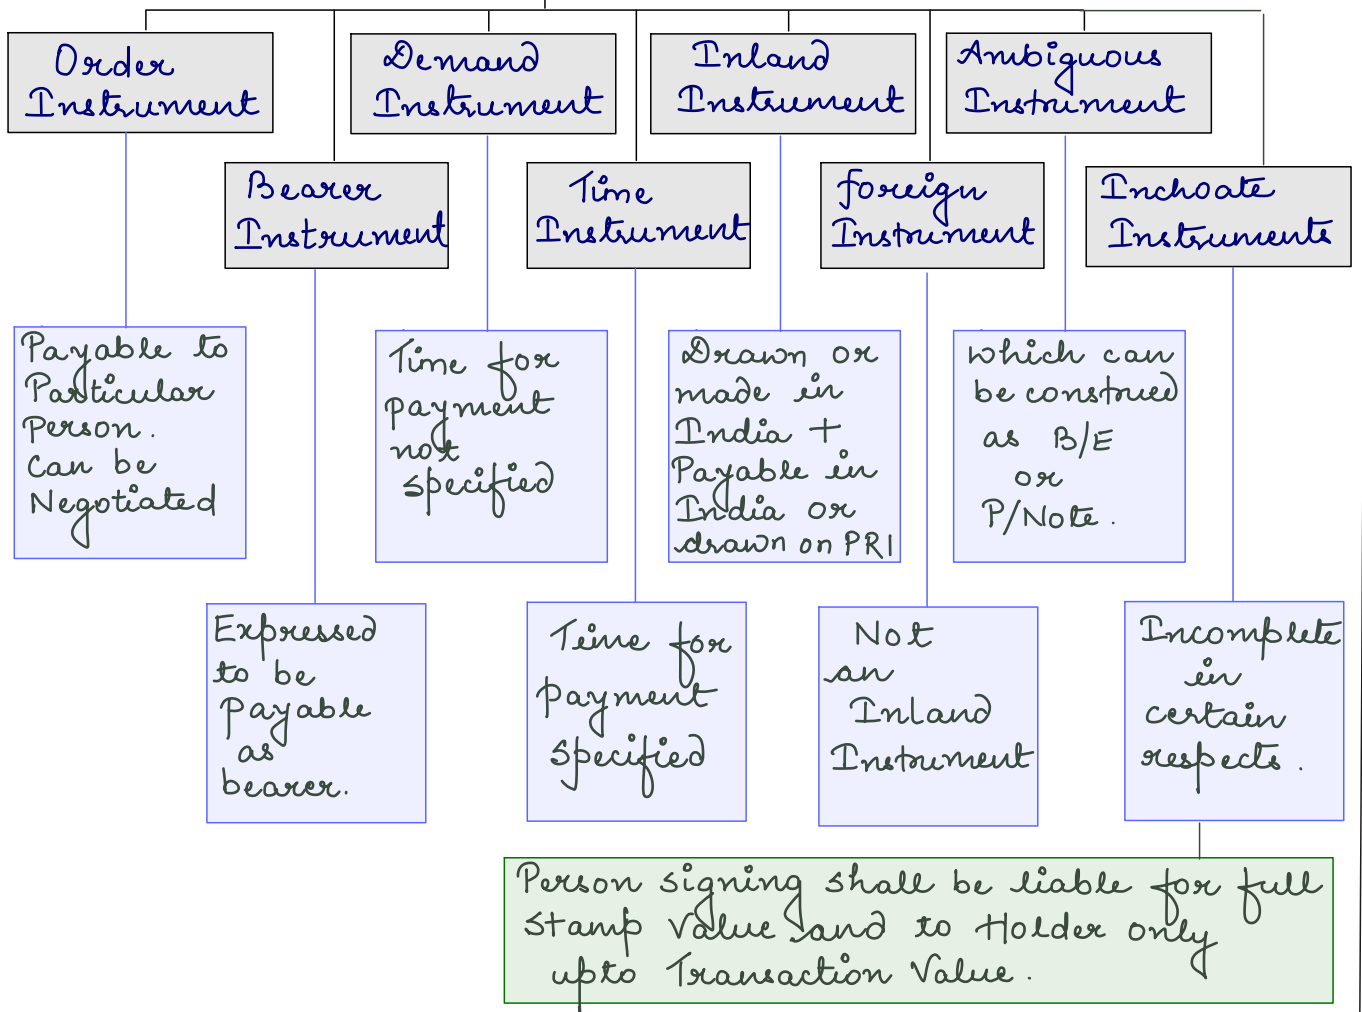 Order
Instrument
Demand
Instrument
Inland
Instrument
Ambiguous
Instrument
Bearer
Instrument
Time
Instrument
foreign
Instrument
Inchoate
Instruments
Payable to
Particular
Person.
Can be
Negotiated
Time for
payment
not
specified
Drawn or
made in
India +
Payable in
India or
drawn on PRI
which can
be construed
as B/E
or
P/Note.
Expressed
to be
payable
as
bearer.
Time for
payment
specified
Not
an
Inland
Instrument
Incomplete
in
certain
respects.
Person signing shall be liable for full
stamp Value and to Holder only
upto Transaction Value.